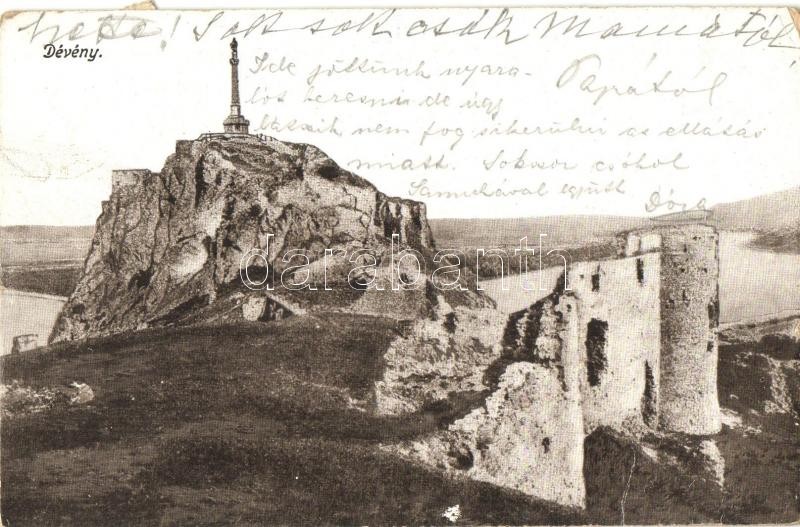 Sok sok csók Mamától
Dévény.
Ide jöttünk nyara-
Papától
lás keresni de úgy
látszik nem fog sikerülni az ellátás
miatt. Sokszor csókol
Samukával együtt
Dóra
darabanth